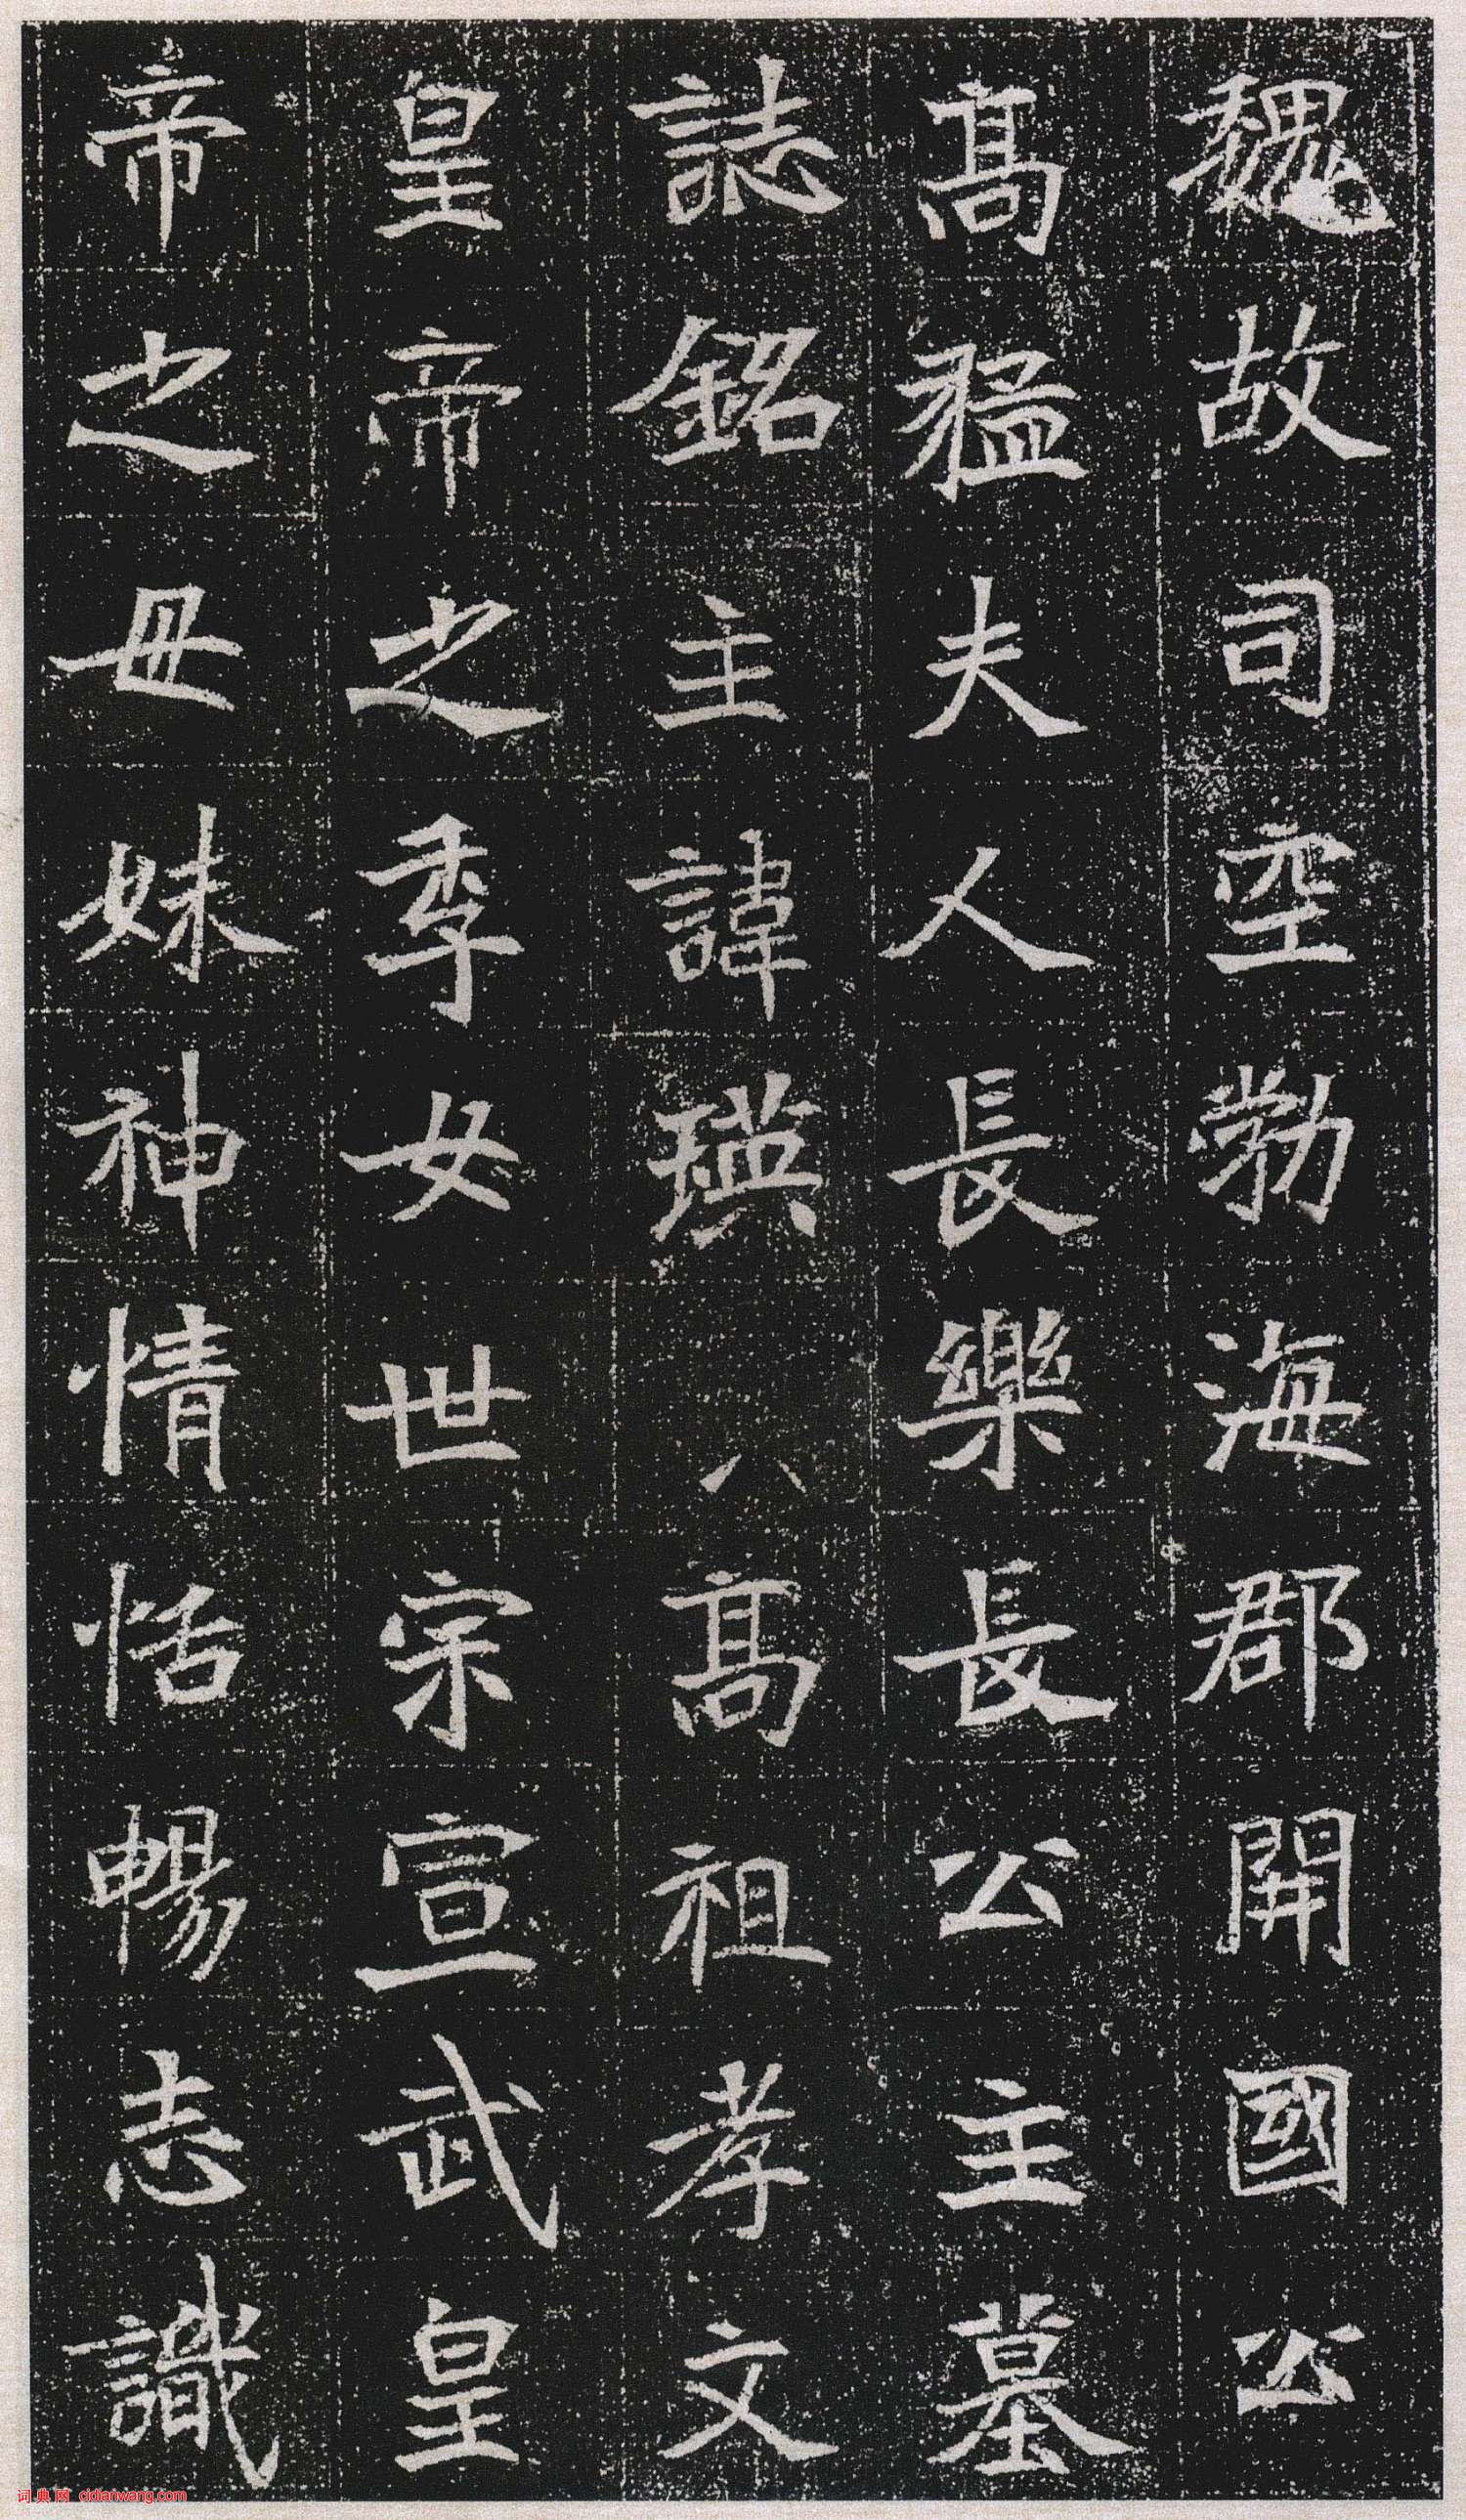 魏故司空勃海郡開國公
高猛夫人長樂長公主墓
誌銘主諱瑛八高祖孝文
皇帝之季女世宗宣武皇
帝之母妹神情恬暢志識
词典网 cidianwang.com